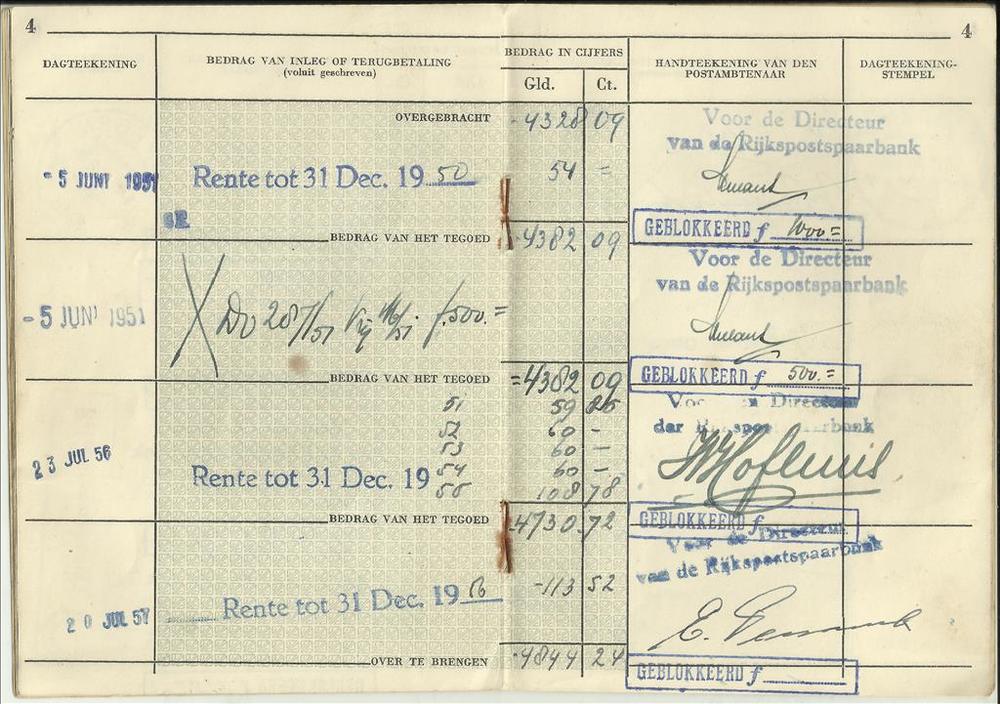 4 4
DAGTEEKENING
BEDRAG VAN INLEG OF TERUGBETALING
(voluit geschreven)
BEDRAG IN CIJFERS
Gld. Ct.
HANDTEEKENING VAN DEN
POSTAMBTENAAR
DAGTEEKENING-
STEMPEL
OVERGEBRACHT 4328 09
Voor de Directeur
van de Rijkspostspaarbank
- 5 JUNI 1951 Rente tot 31 Dec. 19 50 54 =
GEBLOKKEERD f 1000 =
BEDRAG VAN HET TEGOED 4382 09
Voor de Directeur
van de Rijkspostspaarbank
- 5 JUNI 1951 f. 500. =
GEBLOKKEERD f 500. =
BEDRAG VAN HET TEGOED =4382 09
51 59 25
Voor Directeur
52 60 -
der Rijkspostspaarbank
53 60 -
23 JUL 56 Rente tot 31 Dec. 19 54 60 -
55 108 78
BEDRAG VAN HET TEGOED 4730 72
GEBLOKKEERD f
Voor de Directeur
van de Rijkspostspaarbank
20 JUL 57 Rente tot 31 Dec. 19 56 -113 52
OVER TE BRENGEN -4844 24
GEBLOKKEERD f